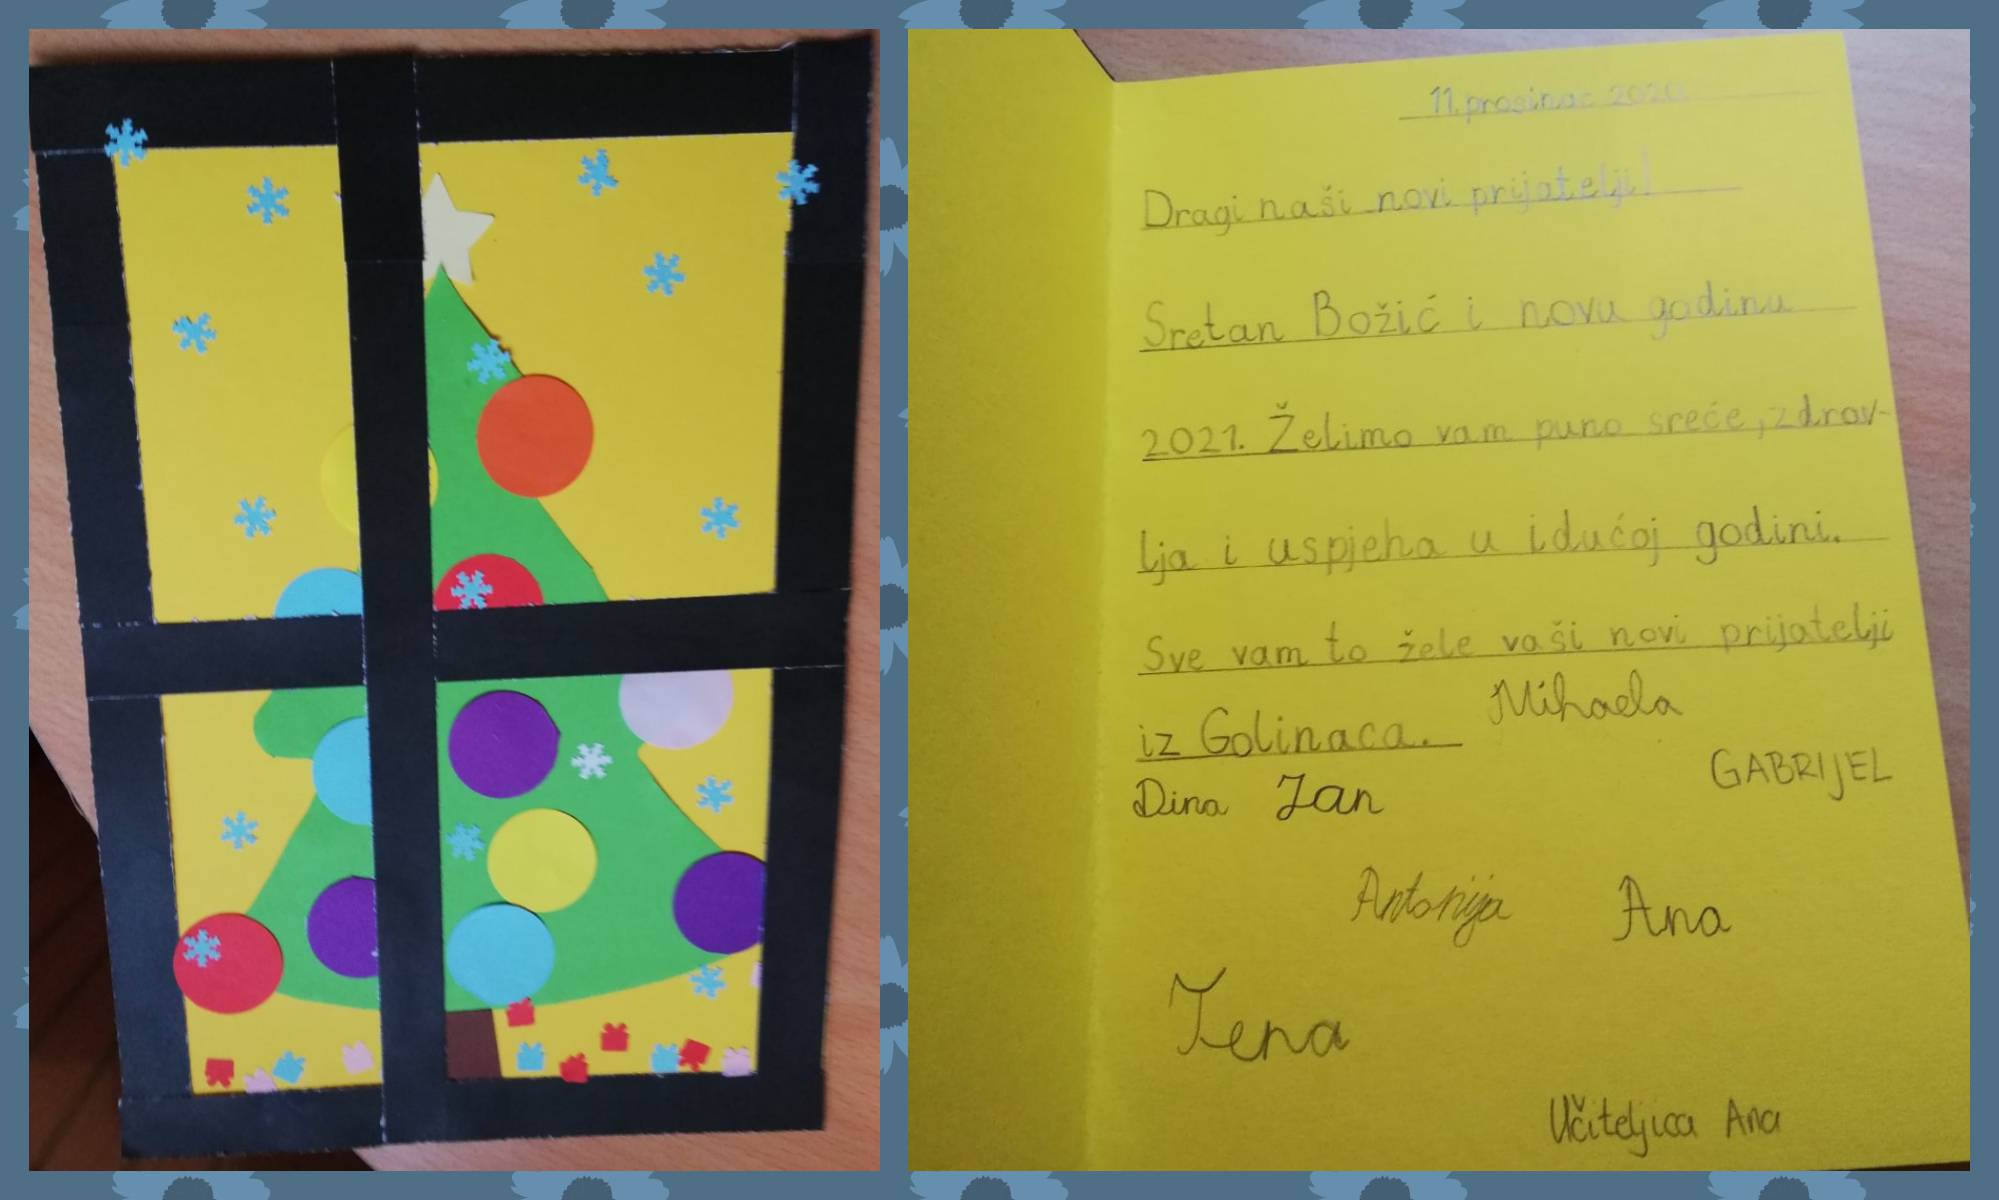 11. prosinac 2020.
Dragi naši novi prijatelji!
Sretan Božić i novu godinu
2021. Želimo vam puno sreće, zdrav-
lja i uspjeha u idućoj godini.
Sve vam to žele vaši novi prijatelji
iz Golinaca. Mihaela
GABRIJEL
Dina Jan
Antonija Ana
Jena
Učiteljica Ana